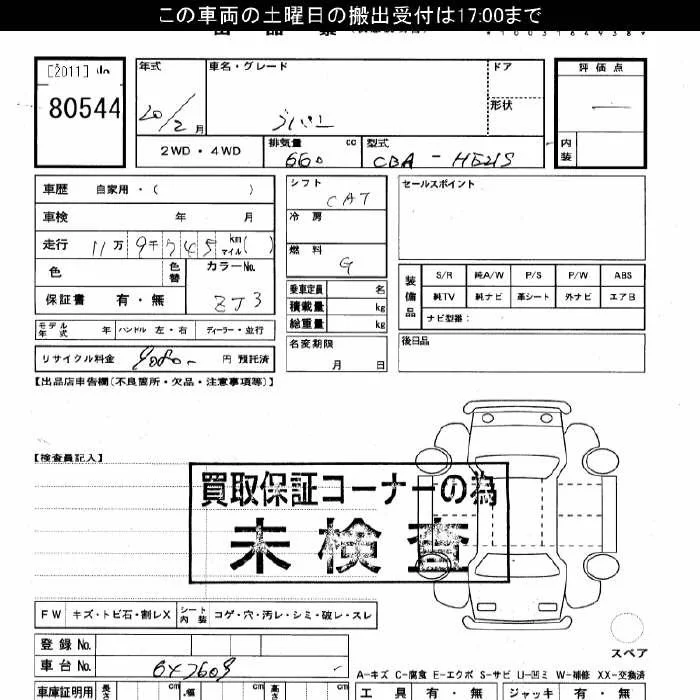 この車両の土曜日の搬出受付は17:00まで
[2011]
80544
年式
20/2月
車名・グレード
ドア
形状
評価点
内装
2WD・4WD
排気量 cc
660
型式
CBA-HE21S
車歴 自家用・( )
車検 年 月
走行 11万9千745 km マイル( )
色 色替 カラーNo.
ZJ3
保証書 有・無
シフト
CAT
冷房
燃料
G
セールスポイント
乗車定員 名
積載量 kg
総重量 kg
装備品
S/R 純A/W P/S P/W ABS
純TV 純ナビ 革シート 外ナビ エアB
ナビ型番:
モデル年式 年 ハンドル 左・右 ディーラー・並行
名変期限
月 日
後日品
リサイクル料金 円 預託済
【出品店申告欄(不良箇所・欠品・注意事項等)】
【検査員記入】
買取保証コーナーの為
未検査
FW キズ・トビ石・割レX シート内装 コゲ・穴・汚レ・シミ・破レ・スレ
スペア
登録No.
車台No.
A-キズ C-腐食 E-エクボ S-サビ U-凹ミ W-補修 XX-交換済
車庫証明用 長さ cm 幅 cm 高さ cm
工具 有・無 ジャッキ 有・無